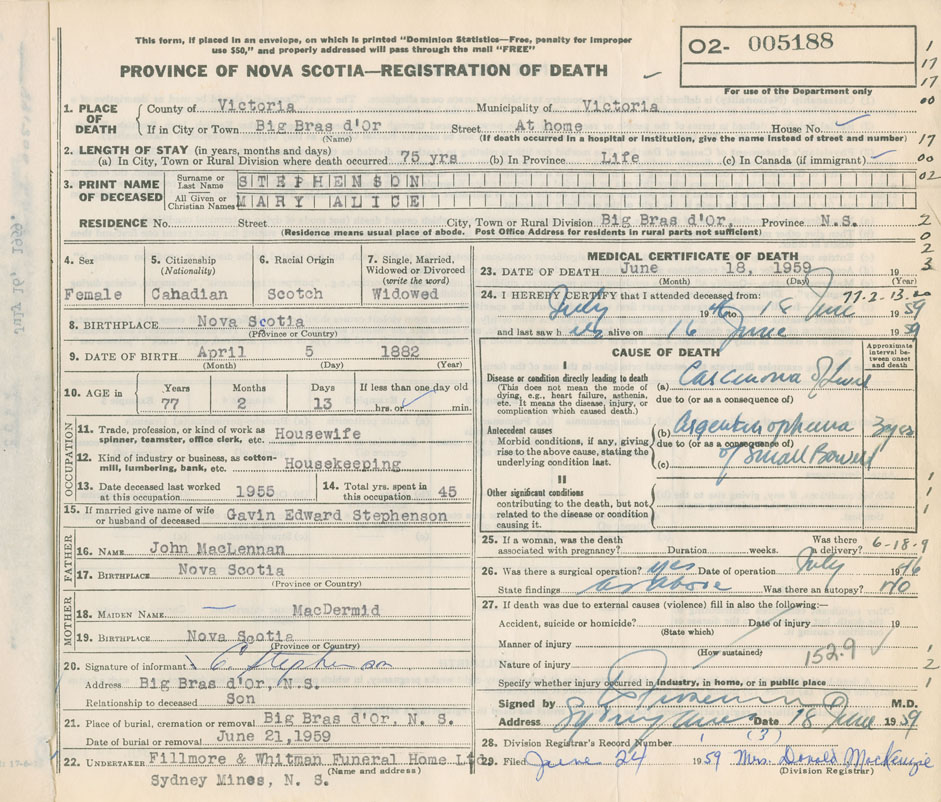 This form, if placed in an envelope, on which is printed "Dominion Statistics—Free, penalty for improper
use $50," and properly addressed will pass through the mail "FREE"
PROVINCE OF NOVA SCOTIA—REGISTRATION OF DEATH
O2- 005188
For use of the Department only
1. PLACE OF DEATH
County of Victoria Municipality of Victoria
If in City or Town Big Bras d'Or Street At home House No.
(Name) (If death occurred in a hospital or institution, give the name instead of street and number)
2. LENGTH OF STAY (in years, months and days)
(a) In City, Town or Rural Division where death occurred 75 yrs (b) In Province Life (c) In Canada (if immigrant)
3. PRINT NAME OF DECEASED
Surname or Last Name STEPHENSON
All Given or Christian Names MARY ALICE
RESIDENCE No. Street City, Town or Rural Division Big Bras d'Or, Province N.S.
(Residence means usual place of abode. Post Office Address for residents in rural parts not sufficient)
4. Sex
Female
5. Citizenship
(Nationality)
Cahadian
6. Racial Origin
Scotch
7. Single, Married,
Widowed or Divorced
(write the word)
Widowed
8. BIRTHPLACE Nova Scotia
(Province or Country)
9. DATE OF BIRTH April 5 1882
(Month) (Day) (Year)
10. AGE in
Years Months Days If less than one day old
77 2 13 hrs. or min.
OCCUPATION
11. Trade, profession, or kind of work as
spinner, teamster, office clerk, etc. Housewife
12. Kind of industry or business, as cotton-
mill, lumbering, bank, etc. Housekeeping
13. Date deceased last worked
at this occupation 1955
14. Total yrs. spent in
this occupation 45
15. If married give name of wife
or husband of deceased Gavin Edward Stephenson
FATHER
16. NAME John MacLennan
17. BIRTHPLACE Nova Scotia
(Province or Country)
MOTHER
18. MAIDEN NAME MacDermid
19. BIRTHPLACE Nova Scotia
(Province or Country)
20. Signature of informant C. Stephenson
Address Big Bras d'Or, N.S.
Relationship to deceased Son
21. Place of burial, cremation or removal Big Bras d'Or, N. S.
Date of burial or removal June 21,1959
22. UNDERTAKER Fillmore & Whitman Funeral Home Ltd.
(Name and address)
Sydney Mines, N. S.
MEDICAL CERTIFICATE OF DEATH
23. DATE OF DEATH June 18, 1959 19
(Month) (Day) (Year)
77-2-13.
24. I HEREBY CERTIFY that I attended deceased from:
July 1946 to 18 June 1959
and last saw her alive on 16 June 1959
CAUSE OF DEATH
Approximate interval between onset and death
I
Disease or condition directly leading to death
(This does not mean the mode of
dying, e.g., heart failure, asthenia,
etc. It means the disease, injury, or
complication which caused death.)
(a) Carcinoma of Liver
due to (or as a consequence of)
Antecedent causes
Morbid conditions, if any, giving
rise to the above cause, stating the
underlying condition last.
(b) 3 yrs
due to (or as a consequence of)
(c) of Small Bowel
II
Other significant conditions
contributing to the death, but not
related to the disease or condition
causing it.
25. If a woman, was the death
associated with pregnancy? Duration weeks.
Was there
a delivery? 6-18-9
26. Was there a surgical operation? yes Date of operation July 1946
State findings as above Was there an autopsy? no
27. If death was due to external causes (violence) fill in also the following:—
Accident, suicide or homicide? Date of injury 19
(State which)
Manner of injury
(How sustained)
Nature of injury 152.9
Specify whether injury occurred in industry, in home, or in public place
Signed by M.D.
Address Sydney Mines Date 18 June 1959
28. Division Registrar's Record Number (3)
29. Filed June 24 1959 Mrs. Donald MacKenzie
(Division Registrar)
1
17
17
00
17
00
02
2
0
2
3
1
1
1
1
2
1
July 16, 1959